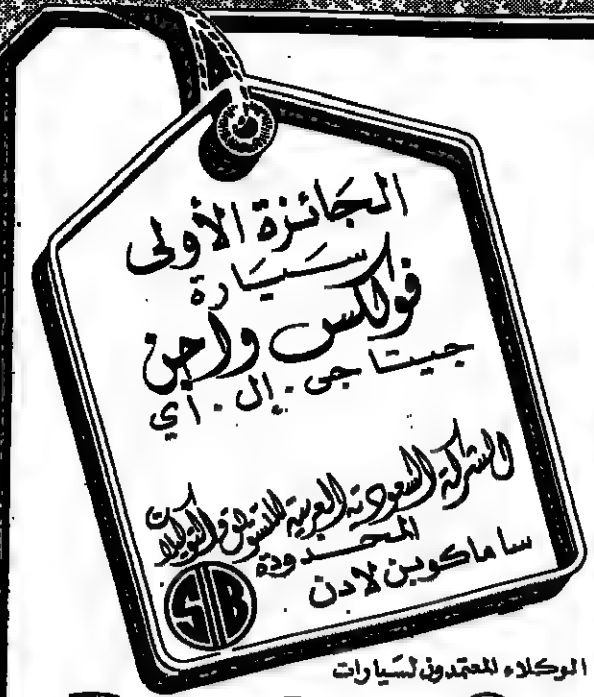 الجائزة الأولى
سيارة
فولكس واجن
جيتا جى . إل . آي
الشركة السعودية العربية للتسويق والتوكيلات
المحدودة
ساماكوبن لادن
SB
الوكلاء المعتمدون لسيارات